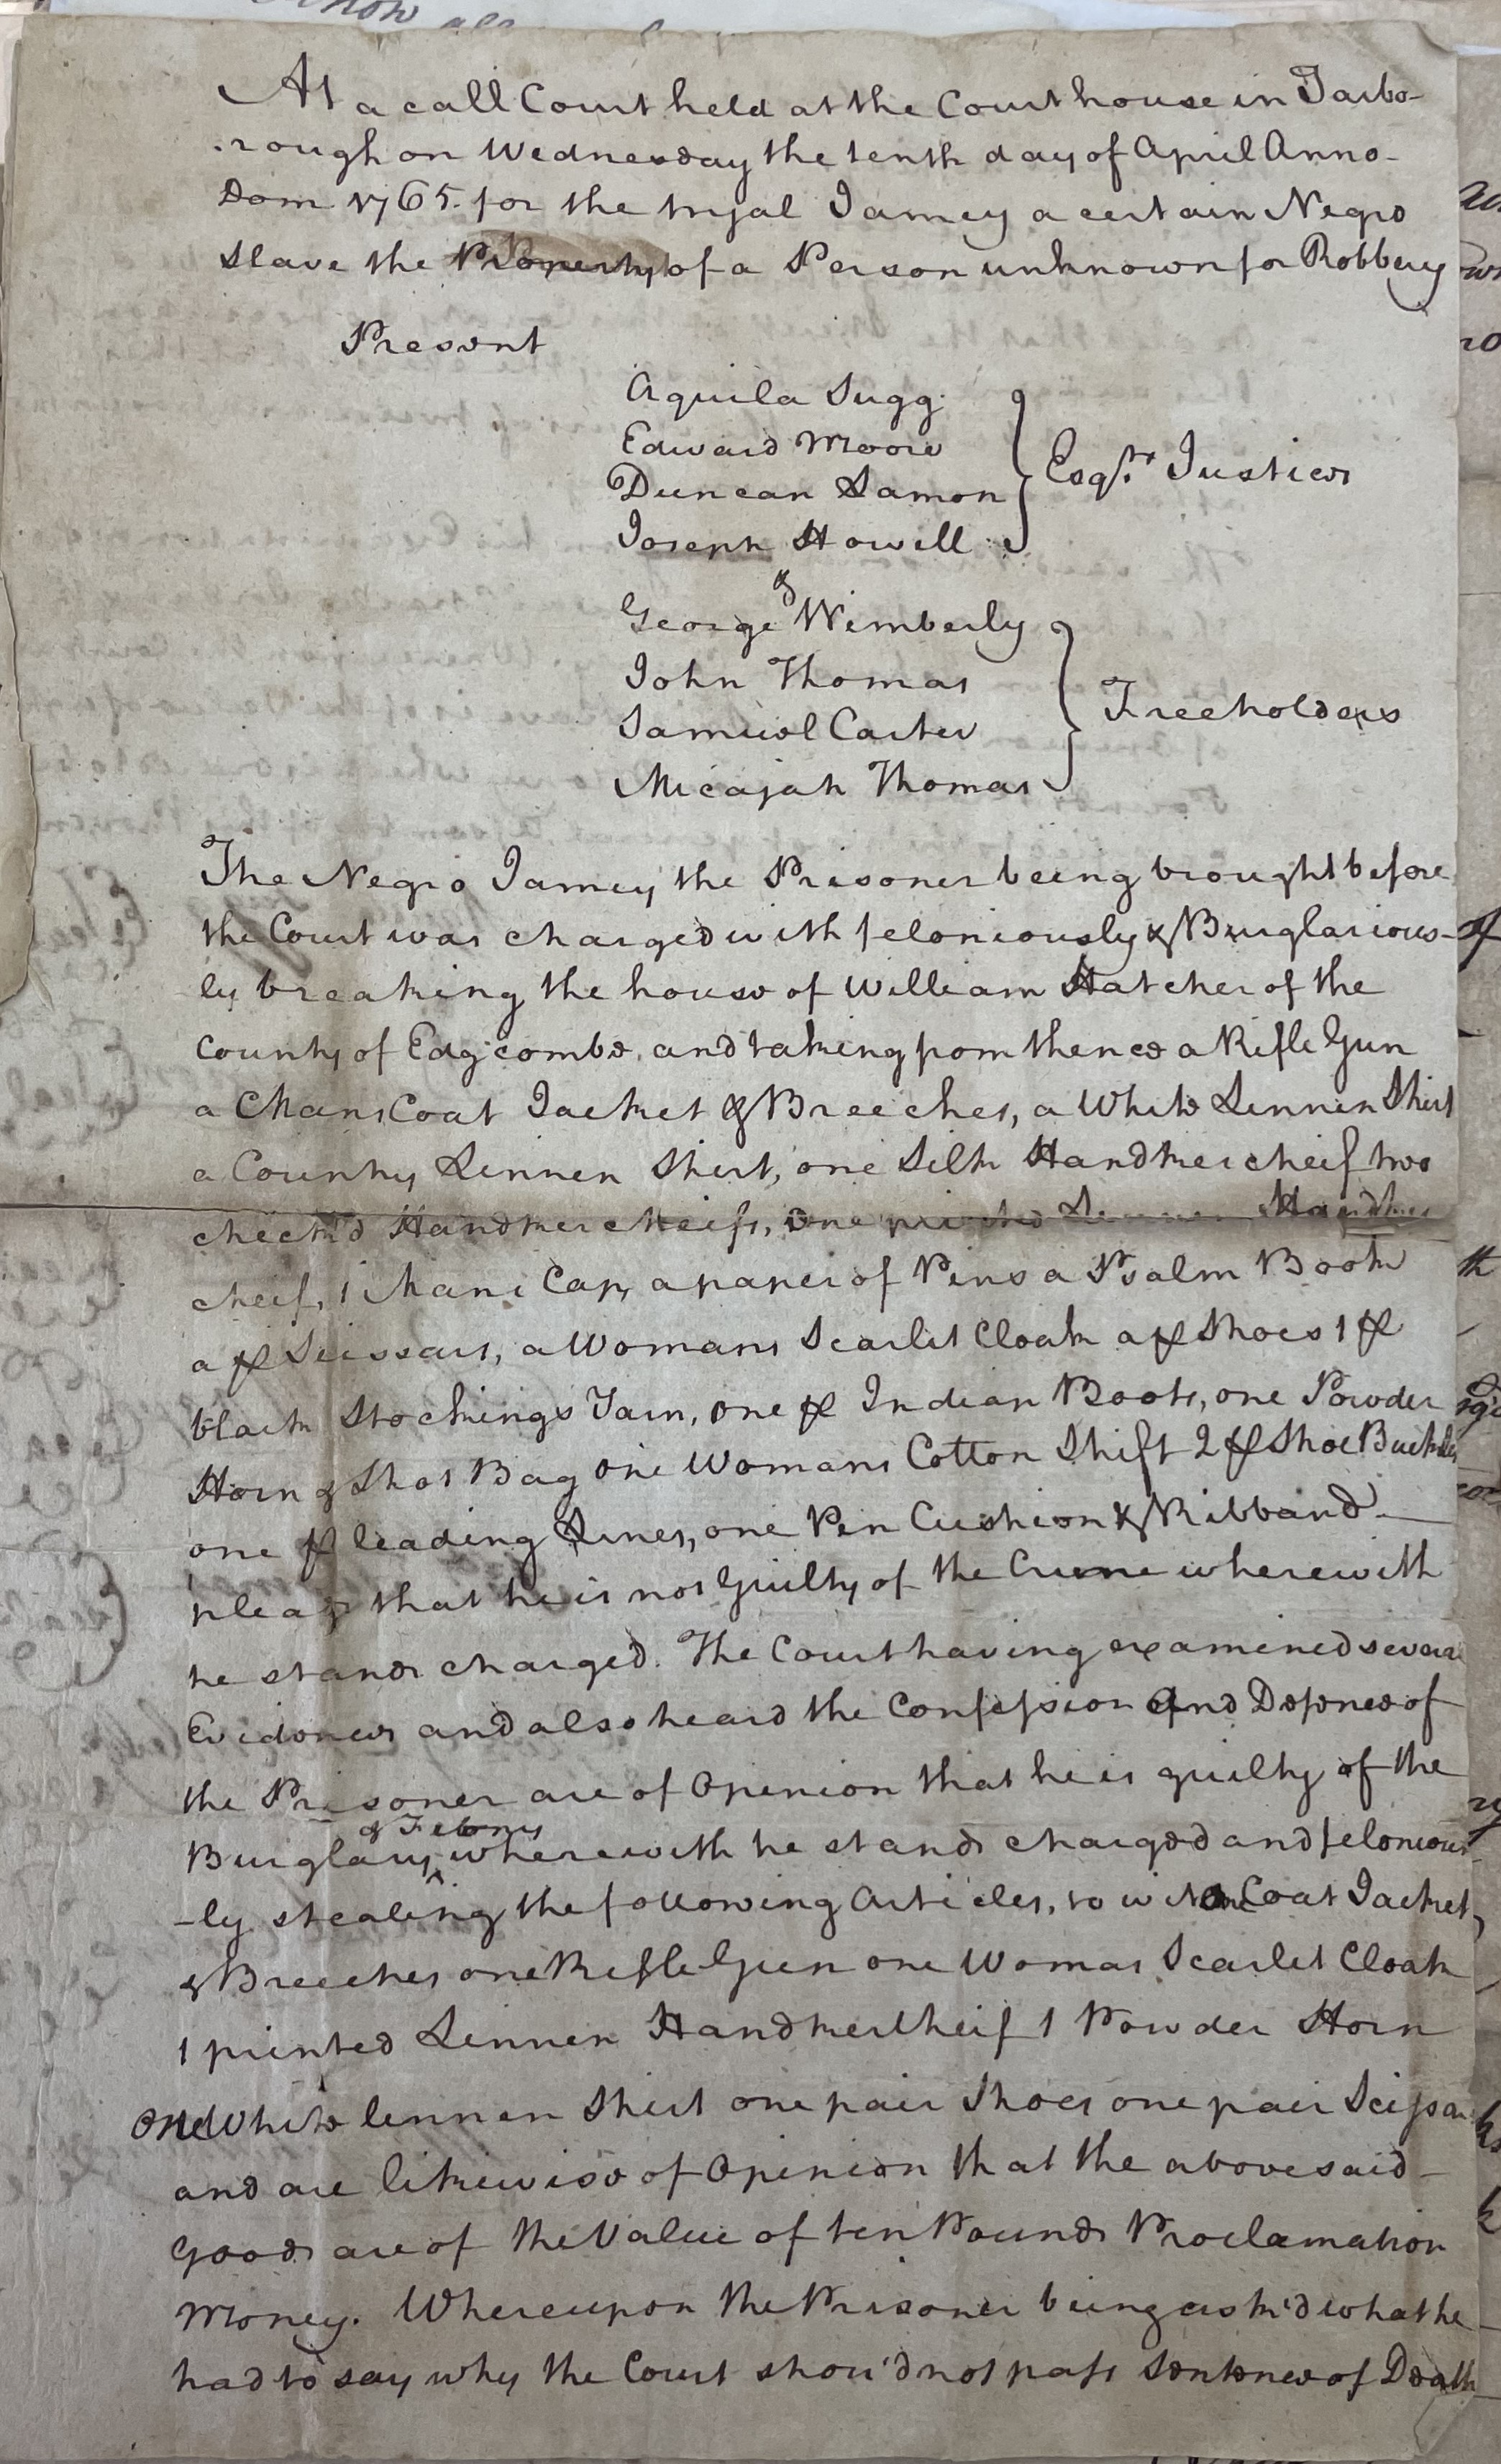 At a call Court held at the Court house in Tarbo-
rough on Wednesday the tenth day of April Anno
Dom 1765. for the tryal Jamey a certain Negro
Slave the Property of a Person unknown for Robbery
Present
Aquila Sugg
Edward Moore
Duncan Lamon
Joseph Howell
Esqrs. Justices
&
George Wimberly
John Thomas
Samuel Carter
Micajah Thomas
Freeholders
The Negro Jamey the Prisoner being brought before
the Court was charged with feloniously & Burglarious-
ly breaking the house of William Hatcher of the
County of Edgcombe, and taking from thence a Rifle Gun
a Mans Coat Jacket & Breeches, a White Linnen Shirt
a Country Linnen Shirt, one Silk Handkercheif two
check'd Handkercheifs, One printed Linnen Handker
cheif, 1 Mans Cap, a paper of Pins a Psalm Book
a pr Scissars, a Womans Scarlet Cloak a pr Shoes 1 pr
black Stockings Yarn, one pr Indian Boots, one Powder
Horn & Shot Bag one Womans Cotton Shift 2 pr Shoe Buckles
one pr leading Lines, one Pin Cushion & Ribband
pleads that he is not Guilty of the Crime wherewith
he stands charged. The Court having examined several
Evidences and also heard the Confession And Defence of
the Prisoner are of Opinion that he is guilty of the
& Felony
Burglary wherewith he stands charged and felonious
-ly stealing the following Articles, to wit One Coat Jacket,
& Breeches one Rifle Gun one Womas Scarlet Cloak
1 printed Linnen Handkercheif 1 Powder Horn
One White linnen Shirt one pair Shoes one pair Scissars
and are likewise of Opinion that the abovesaid
goods are of the Value of ten Pounds Proclamation
Money. Whereupon the Prisoner being ask'd what he
had to say why the Court shou'd not pass Sentence of Death